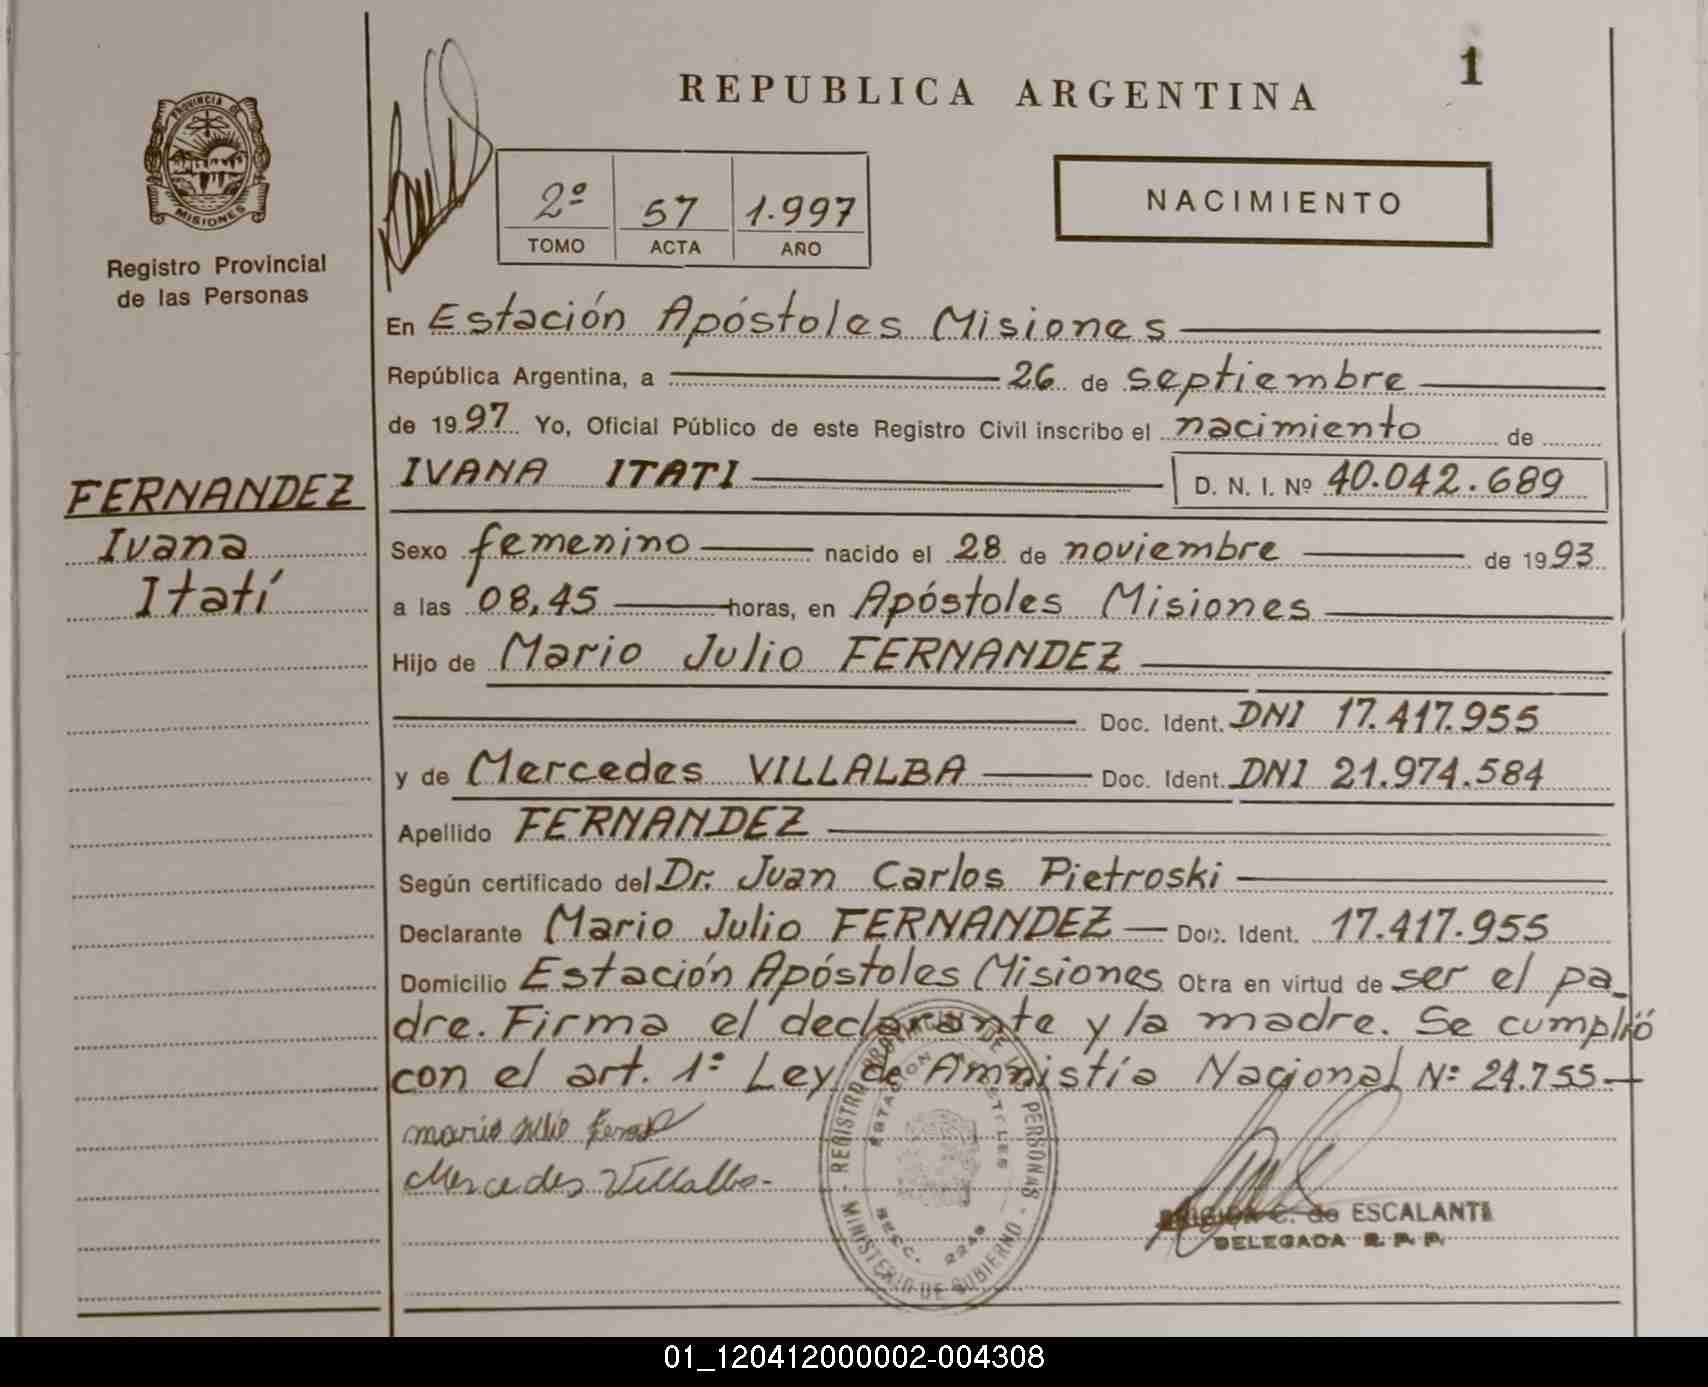 1
REPUBLICA ARGENTINA
PROVINCIA DE
MISIONES
Registro Provincial
de las Personas
2º 57 1.997
TOMO ACTA AÑO
NACIMIENTO
En Estación Apóstoles Misiones
República Argentina, a 26 de septiembre
de 1997 Yo, Oficial Público de este Registro Civil inscribo el nacimiento de
IVANA ITATI D. N. I. Nº 40.042.689
FERNANDEZ
Ivana
Itatí
Sexo femenino nacido el 28 de noviembre de 1993
a las 08,45 horas, en Apóstoles Misiones
Hijo de Mario Julio FERNANDEZ
Doc. Ident. DNI 17.417.955
y de Mercedes VILLALBA Doc. Ident. DNI 21.974.584
Apellido FERNANDEZ
Según certificado del Dr. Juan Carlos Pietroski
Declarante Mario Julio FERNANDEZ Doc. Ident. 17.417.955
Domicilio Estación Apóstoles Misiones Obra en virtud de ser el pa-
dre. Firma el declarante y la madre. Se cumplió
con el art. 1º Ley de Amnistía Nacional Nº 24.755
mario Julio
Mercedes Villalba
REGISTRO PROVINCIAL DE LAS PERSONAS - MINISTERIO DE GOBIERNO -
ESTACION APOSTOLES
SECC. 2248
C. de ESCALANTE
DELEGADA R. P. P.
01_120412000002-004308